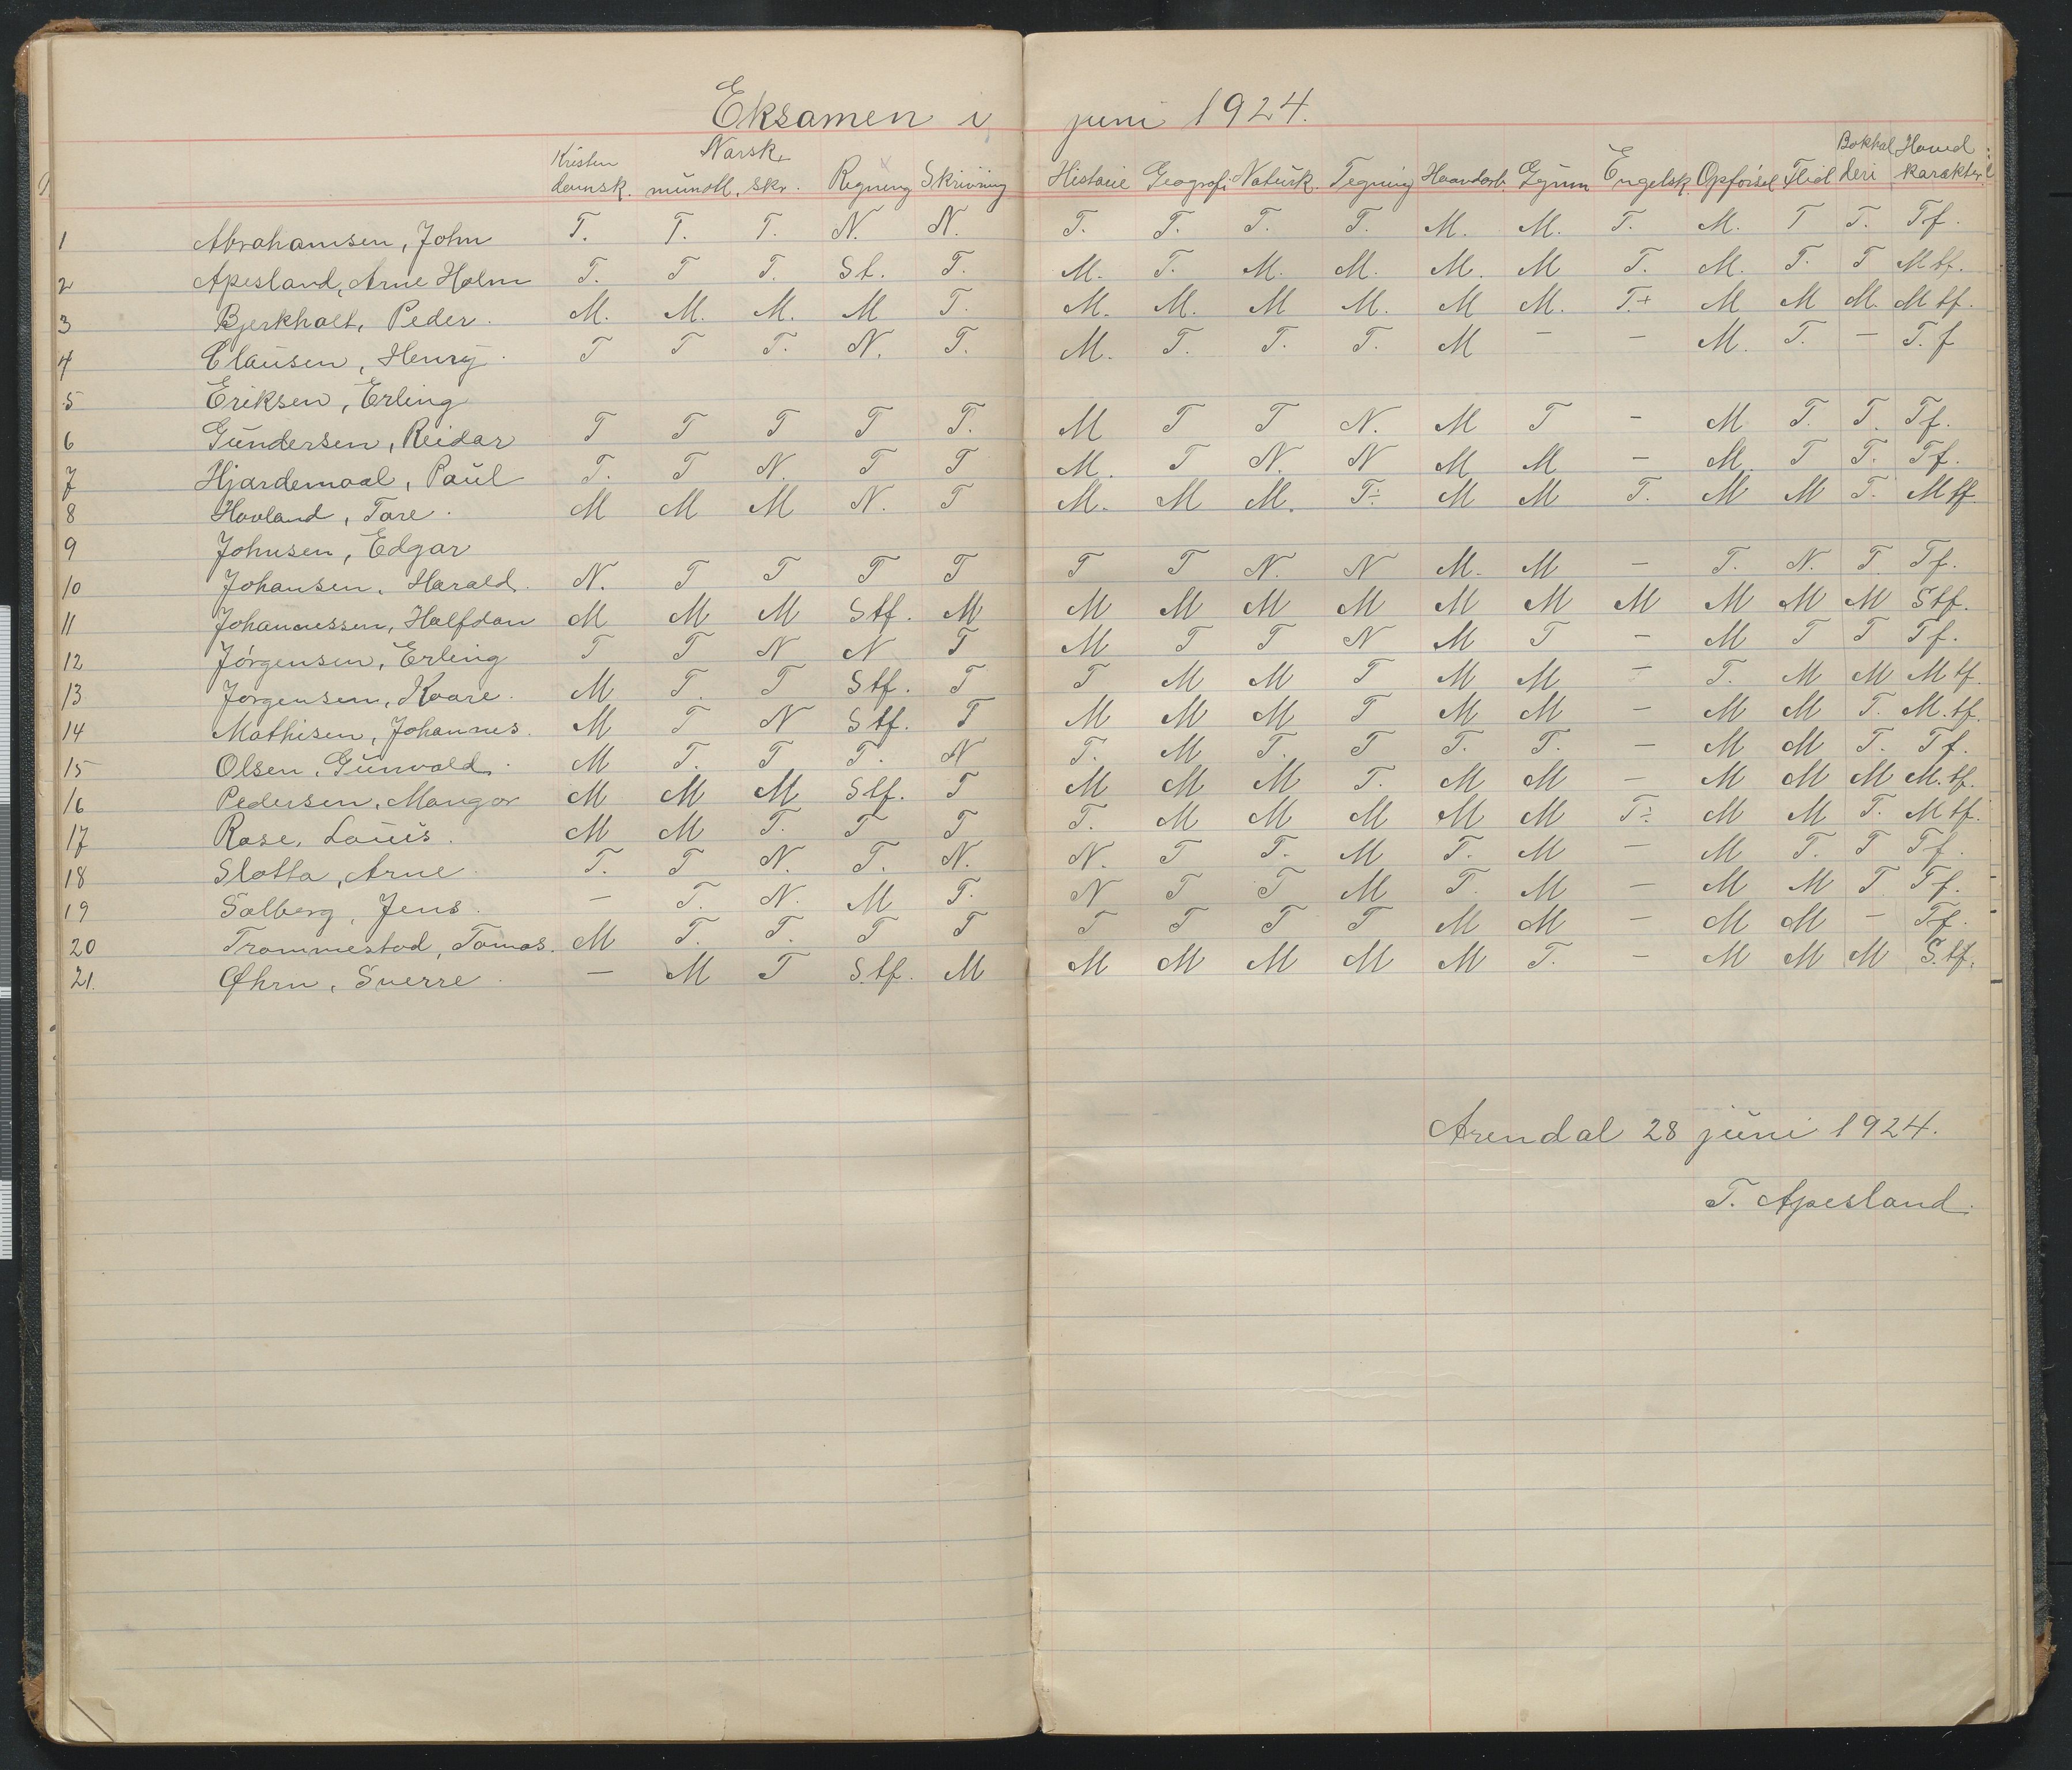 Eksamen i juni 1924.
Kristendomsk. Norsk mündtl. skr. Regning Skrivning Historie Geografi Natürk. Tegning Haandarb. Gymn Engelsk. Opførsel Flid Bokholderi Hovedkarakter
1 Abrahamsen, John T. T. T. N. N. T. T. T. T. M. M. T. M. T T. Tf.
2 Apesland, Arne Holm T. T T. St. T. M. T. M. M. M. M T. M. T. T Mtf.
3 Bjerkholt, Peder. M. M. M. M T. M. M. M M. M M. T.+ M M M. Mtf.
4 Claüsen, Henry. T T T. N. T. M. T. T. T. M – – M. T. – T.f
5 Eriksen, Erling
6 Gündersen, Reidar T T T T T. M T T N. M T – M T. T. Tf.
7 Hjardemaal, Paül T. T N. T T M. T N. N M M – M. T T. Tf.
8 Hovland, Tore. M M M N. T M. M M. T÷ M M T. M M T. Mtf
9 Johnsen, Edgar
10 Johansen, Harald. N. T T T T T T N. N M. M – T. N. T. Tf.
11 Johannessen, Halfdan M M M Stf. M M M M M M M M M M M Stf.
12 Jörgensen, Erling T T N N T M T T N M T – M T T Tf.
13 Jörgensen, Kaare. M T. T Stf. T T M M T M M – T. M M Mtf.
14 Mathisen, Johannes. M T N Stf. T M M M T M M – M M T. M.tf.
15 Olsen, Günvald. M T. T T. N T. M T. T T. T. – M M T. Tf.
16 Pedersen, Mangor M M M Stf. T M M M T. M M – M M M M.tf.
17 Rose, Loüis. M M T. T T T. M M M M M T÷ M M T. Mtf.
18 Slotta, Arne. T. T N. T. N. N. T T. M T. M – M T. T Tf.
19 Solberg, Jens. – T. N. M T. N T T M T. M – M M T Tf.
20 Trommestad, Tomas. M T. T. T T T T T T M M – M M – Tf.
21. Øhrn, Sverre. – M T S.tf. M M M M M M T. – M M M S.tf.
Arendal 28 jüni 1924.
T. Apesland.